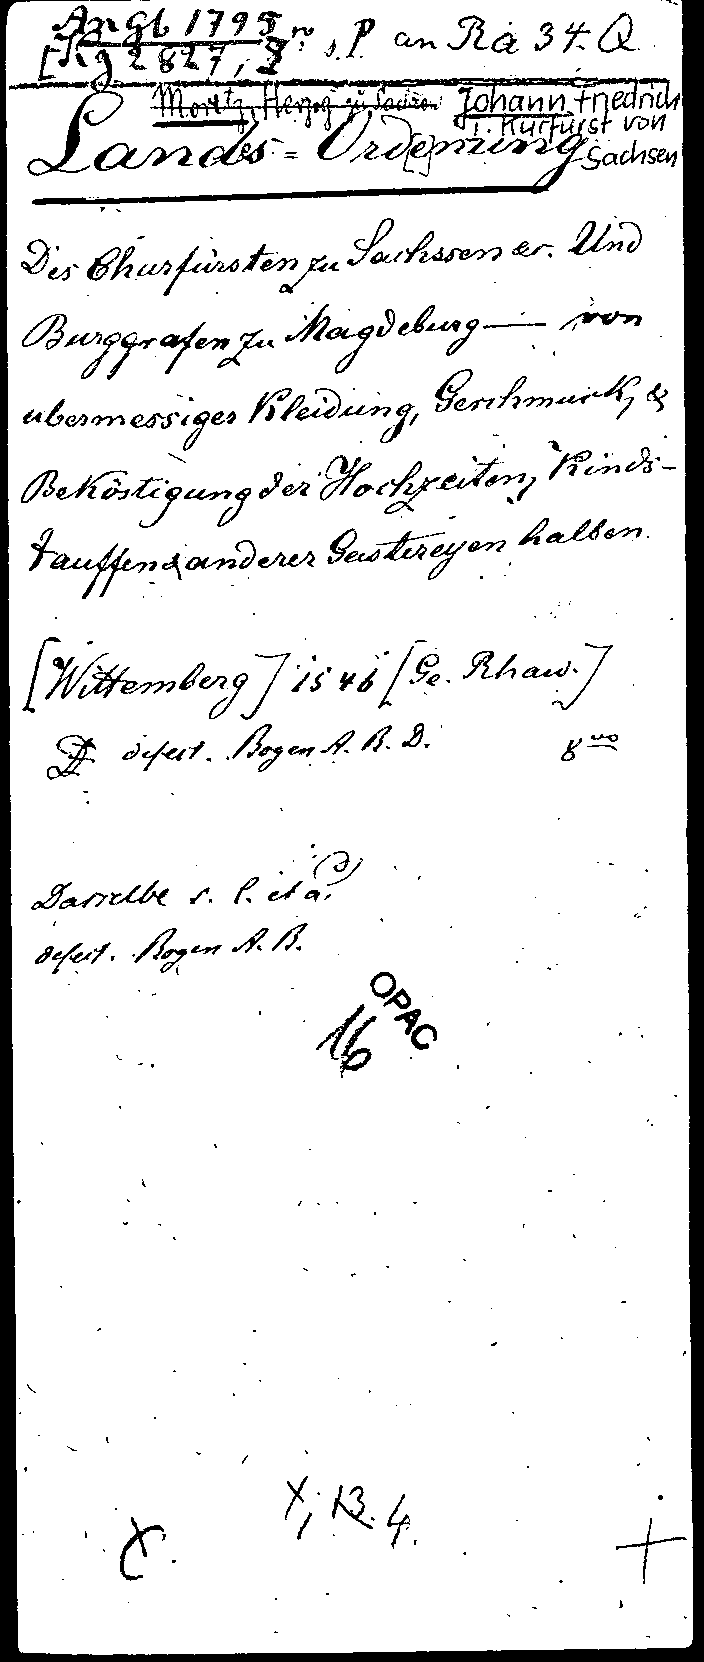 An Gb 1795
[Kg 2827, 2 s. P. an Ra 34. Q
Moritz, Herzog zu Sachsen Johann Friedrich
I. Kurfürst von
Lands=Ord[e]nung Sachsen
Des Churfürsten zu Sachssen &c. Und
Burggrafen zu Magdeburg — von
ubermessiger Kleidung, Geschmuck, &
Beköstigung der Hochzeiten, Kinds-
tauffen & anderer Gastereyen halben.
[Wittemberg] 1546 [Ge. Rhaw.]
defect. Bogen A. B. D. 8vo
Dasselbe s. l. et a.
defect. Bogen A. B.
OPAC
16
X, 13. 4.